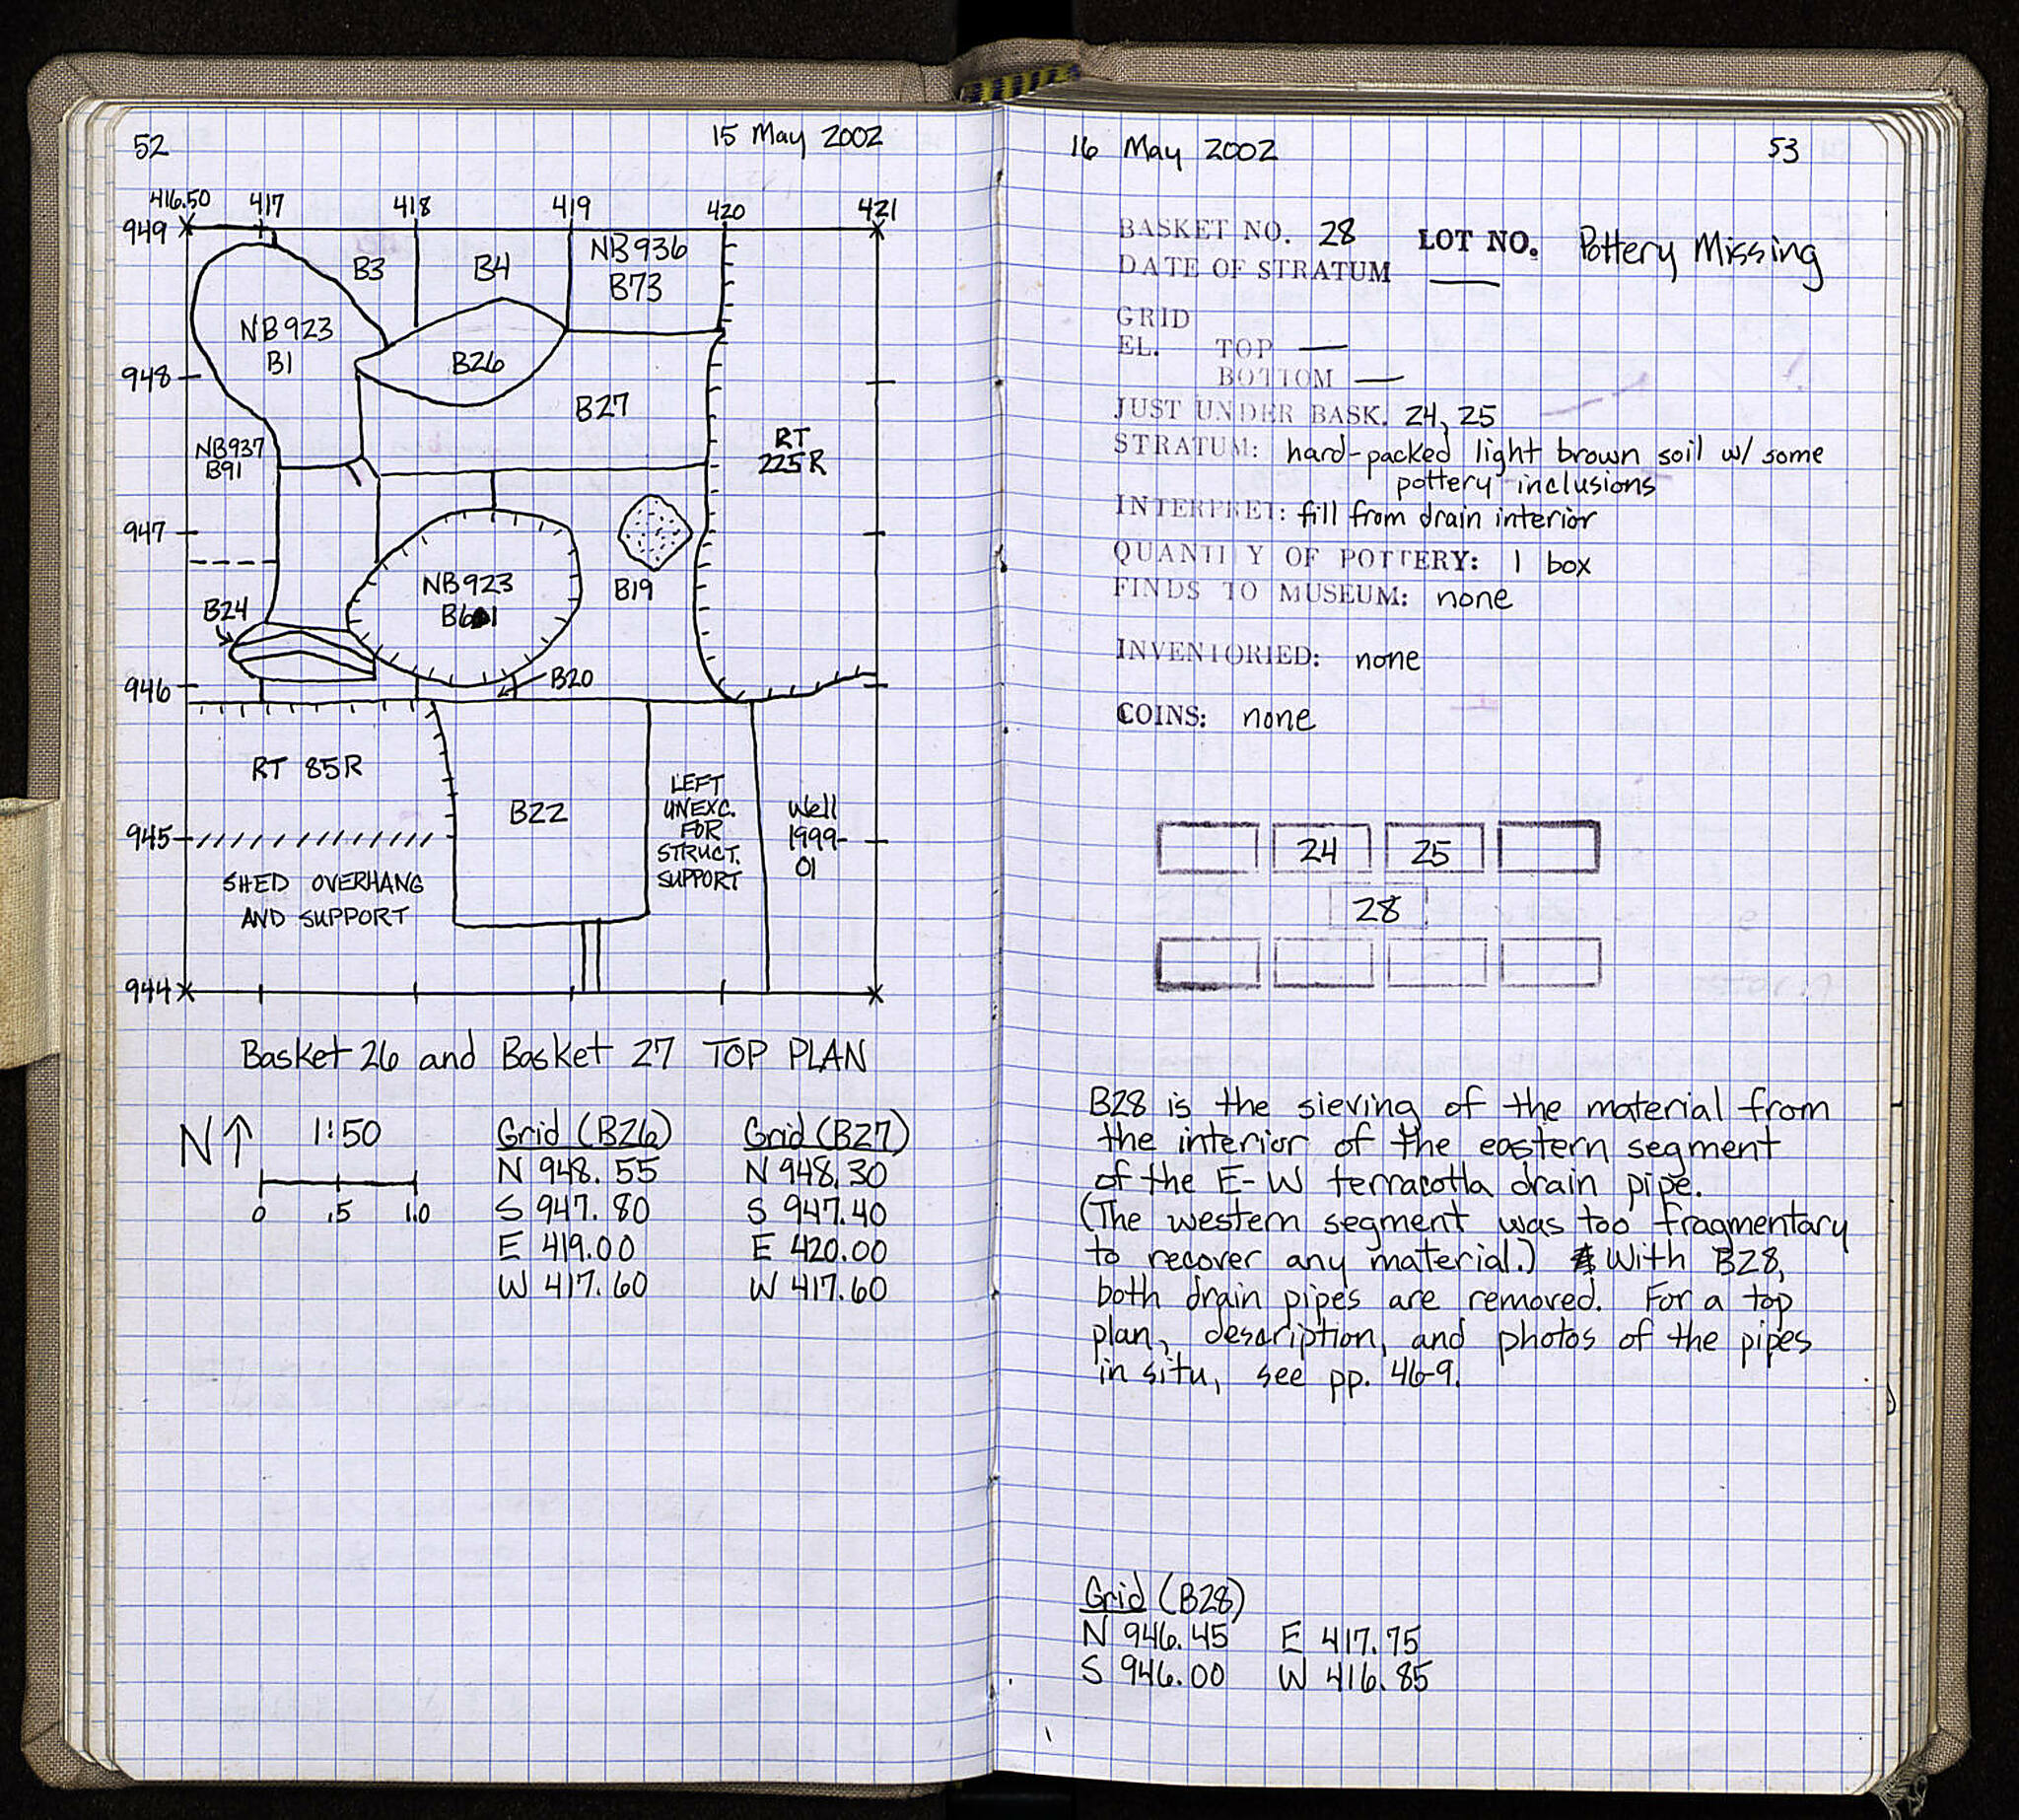 52
15 May 2002
416.50 417 418 419 420 421
949
B3 B4 NB936
B73
NB923
B1
B26
948
B27
NB937
B91
RT
225R
947
NB923
B61
B19
B24
946
B20
RT 85R
B22
LEFT
UNEXC.
FOR
STRUCT.
SUPPORT
Well
1999-
01
945
SHED OVERHANG
AND SUPPORT
944
Basket 26 and Basket 27 TOP PLAN
N↑ 1:50
0 .5 1.0
Grid (B26)
N 948.55
S 947.80
E 419.00
W 417.60
Grid (B27)
N 948.30
S 947.40
E 420.00
W 417.60
16 May 2002
53
BASKET NO. 28 LOT NO. Pottery Missing
DATE OF STRATUM —
GRID
EL. TOP —
BOTTOM —
JUST UNDER BASK. 24, 25
STRATUM: hard-packed light brown soil w/ some
pottery inclusions
INTERPRET: fill from drain interior
QUANTITY OF POTTERY: 1 box
FINDS TO MUSEUM: none
INVENTORIED: none
COINS: none
24 25
28
B28 is the sieving of the material from
the interior of the eastern segment
of the E-W terracotta drain pipe.
(The western segment was too fragmentary
to recover any material.) With B28,
both drain pipes are removed. For a top
plan, description, and photos of the pipes
in situ, see pp. 46-9.
Grid (B28)
N 946.45 E 417.75
S 946.00 W 416.85